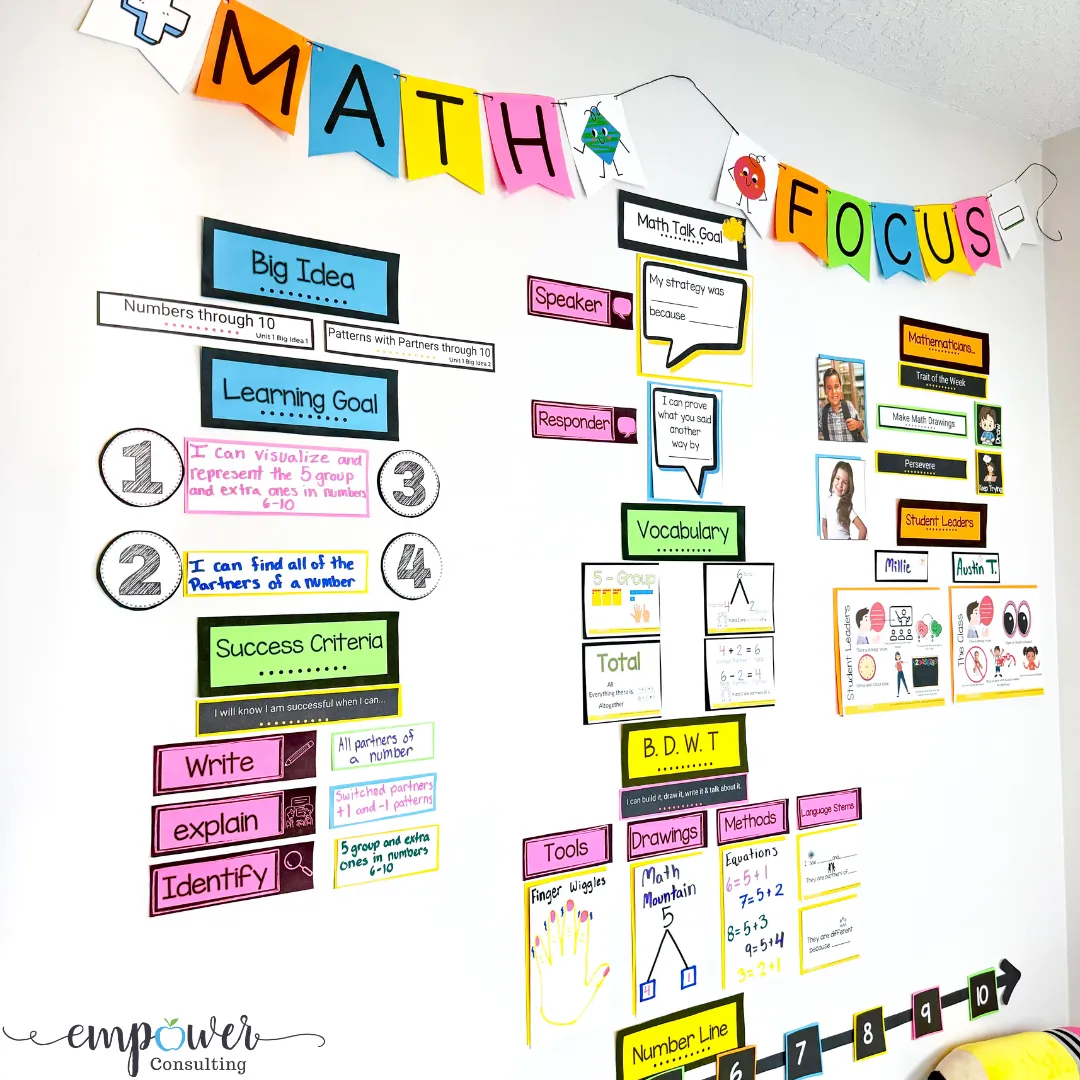 MATH
FOCUS
Big Idea
Numbers through 10
Unit 1 Big Idea 1
Patterns with Partners through 10
Unit 1 Big Idea 2
Learning Goal
1
I can visualize and
represent the 5 group
and extra ones in numbers
6-10
3
2
I can find all of the
Partners of a number
4
Success Criteria
I will know I am successful when I can...
Write
All partners of
a number
explain
Switched partners
+1 and -1 patterns
Identify
5 group and extra
ones in numbers
6-10
Math Talk Goal
Speaker
My strategy was
because
Responder
I can prove
what you said
another
way by
Vocabulary
5 - Group
6
4 2
Total
All
Everything there is.
Altogether
4 + 2 = 6
6 - 2 = 4
B. D. W. T
I can build it, draw it, write it & talk about it.
Tools
Finger Wiggles
Drawings
Math
Mountain
5
4 1
Methods
Equations
6=5+1
7=5+2
8=5+3
9=5+4
3=2+1
Language Stems
I see and
They are partners of
They are different
because
Number Line
6 7 8 9 10
Mathematicians...
Trait of the Week
Make Math Drawings
Draw
Persevere
Keep Trying
Student Leaders
Millie
Austin T.
Student Leaders
The Class
empower
Consulting